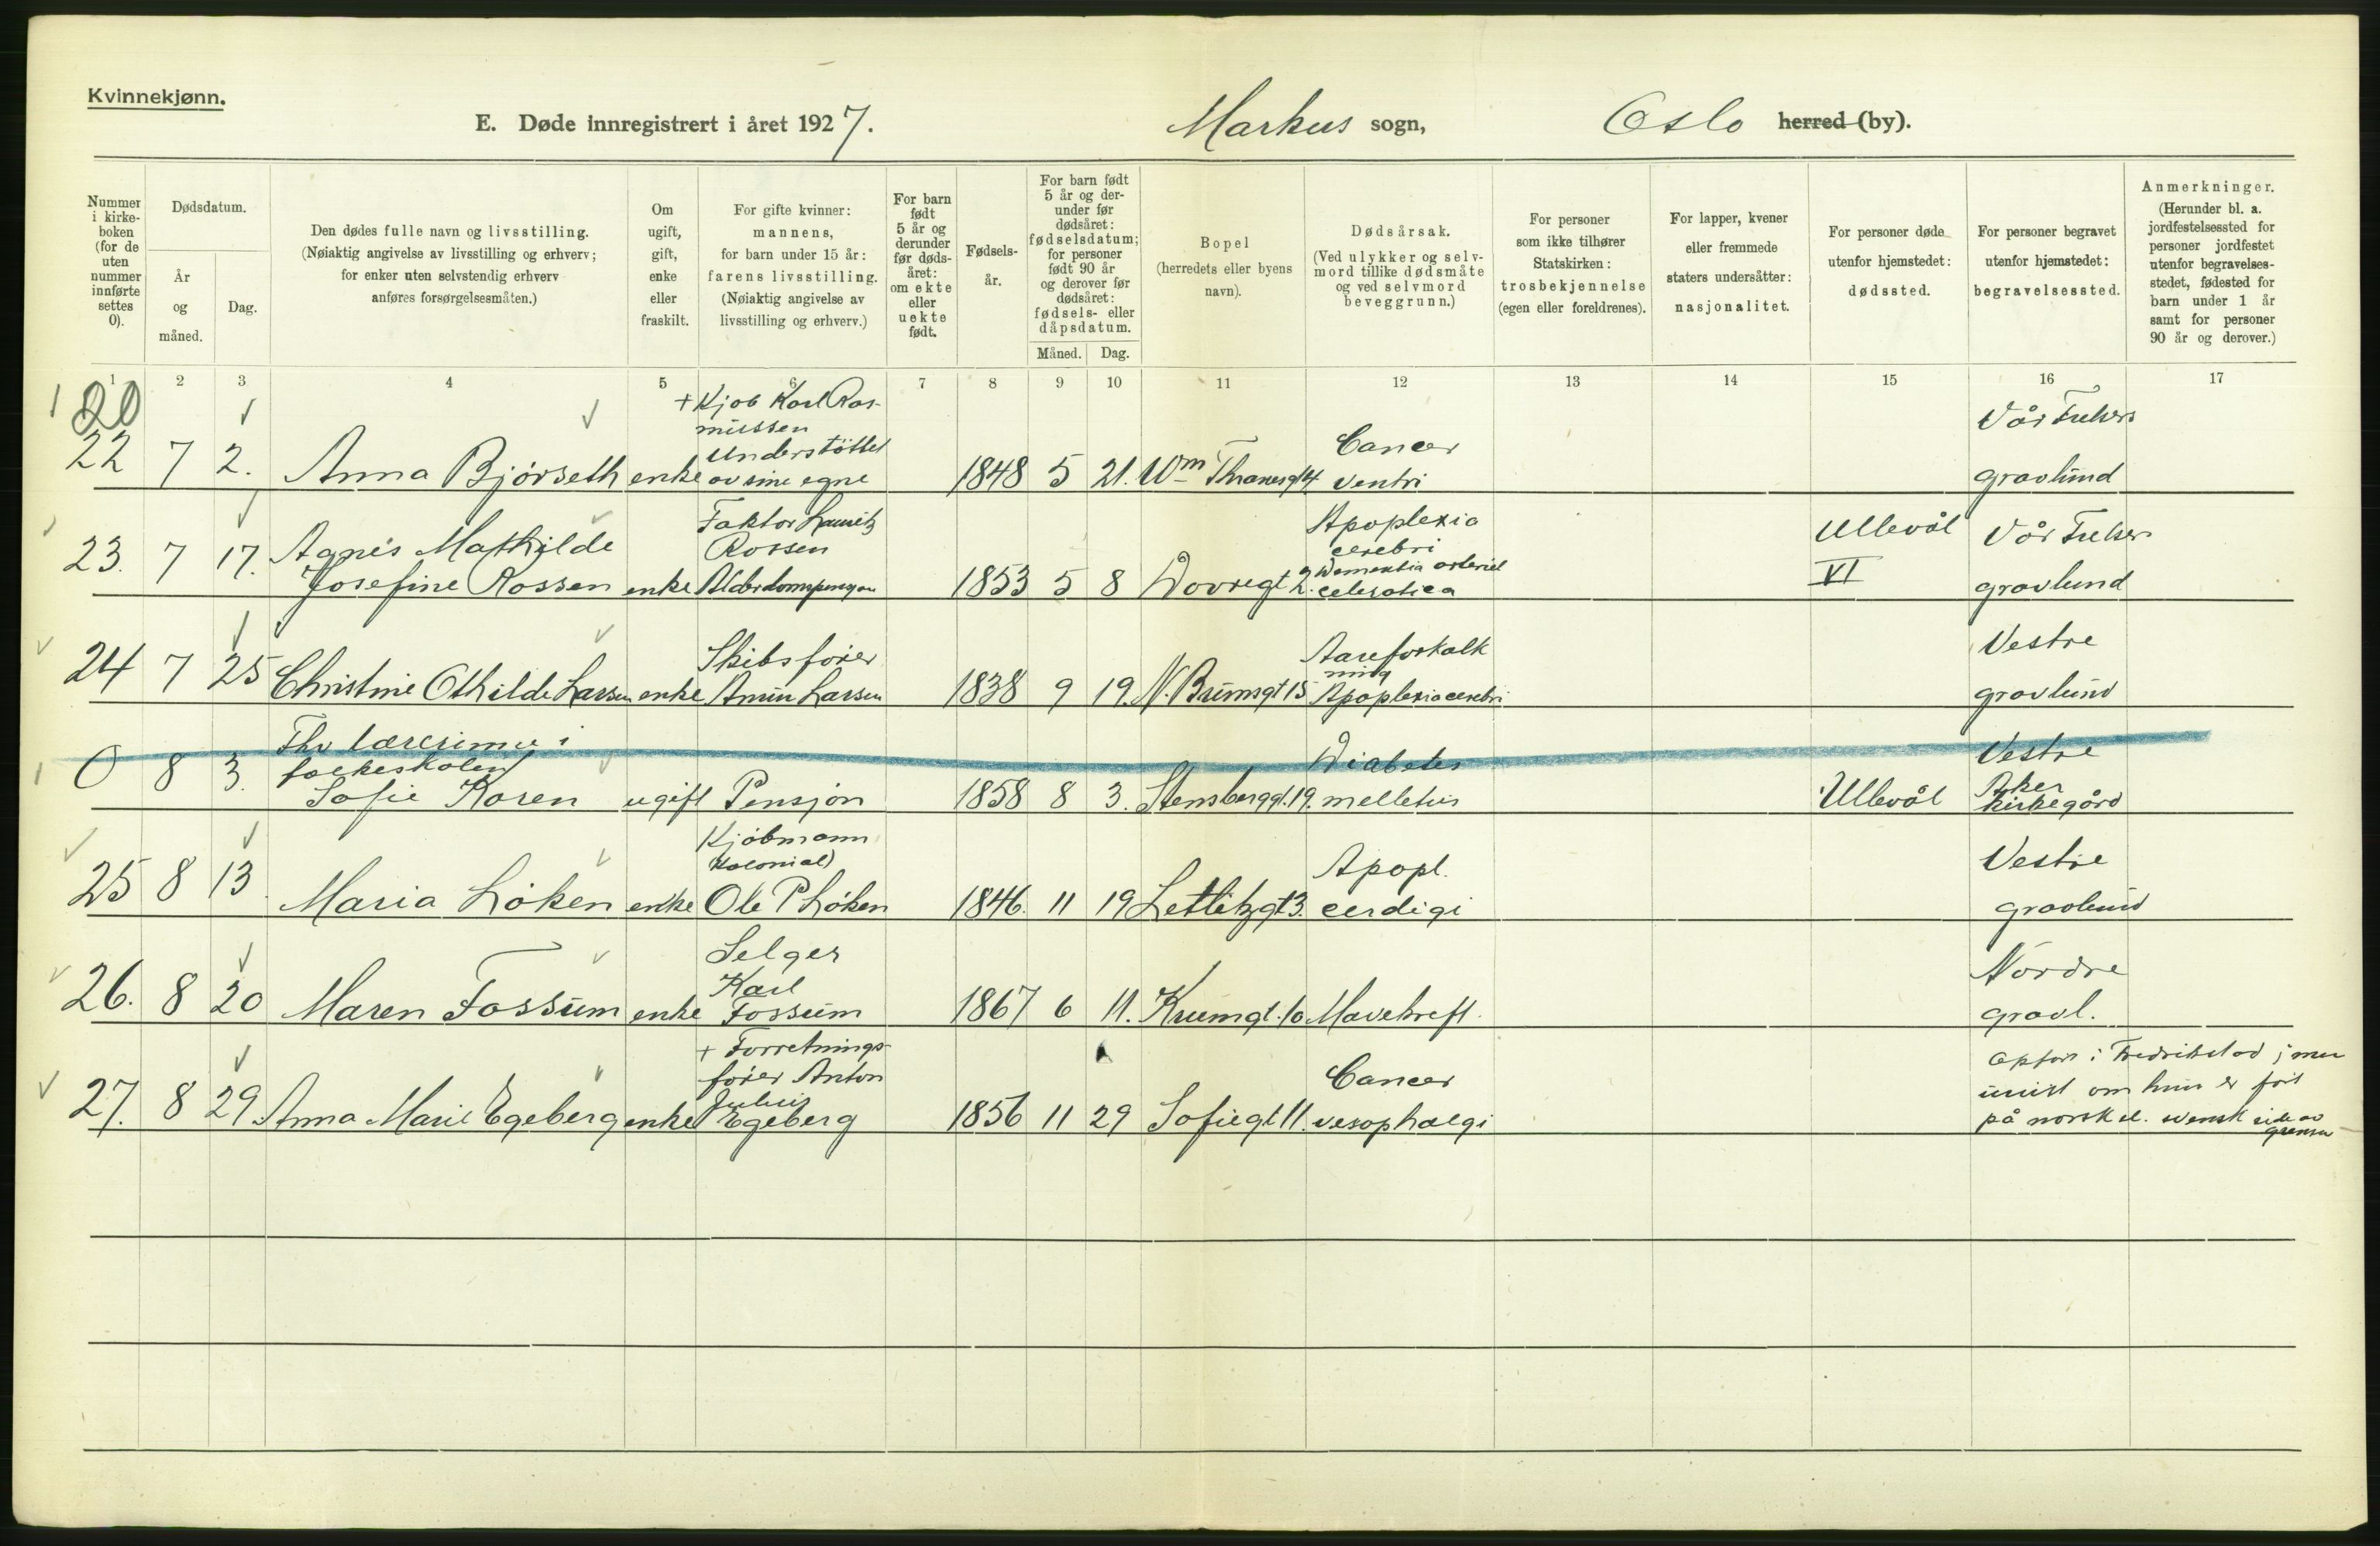 Kvinnekjønn.
E. Døde innregistrert i året 1927. Markus sogn, Oslo herred (by).
Nummer i kirke-boken (for de uten nummer innførte settes 0).
Dødsdatum.
År og måned.
Dag.
Den dødes fulle navn og livsstilling.
(Nøiaktig angivelse av livsstilling og erhverv;
for enker uten selvstendig erhverv
anføres forsørgelsesmåten.)
Om ugift, gift, enke eller fraskilt.
For gifte kvinner:
mannens,
for barn under 15 år:
farens livsstilling.
(Nøiaktig angivelse av
livsstilling og erhverv.)
For barn født 5 år og derunder før døds-året: om ekte eller uekte født.
Fødsels-år.
For barn født 5 år og der-under før dødsåret: fødselsdatum; for personer født 90 år og derover før dødsåret: fødsels- eller dåpsdatum.
Måned. Dag.
Bopel
(herredets eller byens
navn).
Dødsårsak.
(Ved ulykker og selv-
mord tillike dødsmåte
og ved selvmord
beveggrunn.)
For personer
som ikke tilhører
Statskirken:
trosbekjennelse
(egen eller foreldrenes).
For lapper, kvener
eller fremmede
staters undersåtter:
nasjonalitet.
For personer døde
utenfor hjemstedet:
dødssted.
For personer begravet
utenfor hjemstedet:
begravelsessted.
Anmerkninger.
(Herunder bl. a.
jordfestelsessted for
personer jordfestet
utenfor begravelses-
stedet, fødested for
barn under 1 år
samt for personer
90 år og derover.)
1 2 3 4 5 6 7 8 9 10 11 12 13 14 15 16 17
20
+ Kjøb Karl Ras-
mussen
Understöttet
Cancer
Vår Frelsers
22 7 2. Anna Björseth enke av sine egne 1848 5 21. Wm Thranesgt 4 ventri gravlund
Faktor Lauritz
Rossen
Apoplexia
cerebri
Ullevål
Vår Frelsers
23. 7 17. Agnes Mathilde
Josefine Rossen enke Alderdomspensjon 1853 5 8 Dovregt 2. Dementia arteriel
VI gravlund
Skibsfører
Aareforkalk
ning
Vestre
24 7 25 Christine Othilde Larsen enke Larsen 1838 9 19. N. Brunsgt 15 Apoplexia cerebri gravlund
Fhv lærerinne i
folkeskolen
Diabetes
Vestre
Aker
0 8 3. Sofie Koren ugift Pensjon 1858 8 3. Stensberggt. 19. melletus Ullevål kirkegård
Kjöbmann
(kolonial)
Apopl.
Vestre
25 8 13 Maria Löken enke Ole P Löken 1846. 11 19 3. gravlund
Selger
Karl
Nordre
26. 8 20 Maren Fossum enke Fossum 1867 6 11. Krumgt. 10 Mavekreft. gravl.
+ Forretnings-
fører Anton
Julius
Cancer
i Fredrikstad; men
om hun er
27. 8 29 Anna Marie Egeberg enke Egeberg 1856 11 29 Sofiegt 11. på norsk el. svensk side av
grensen